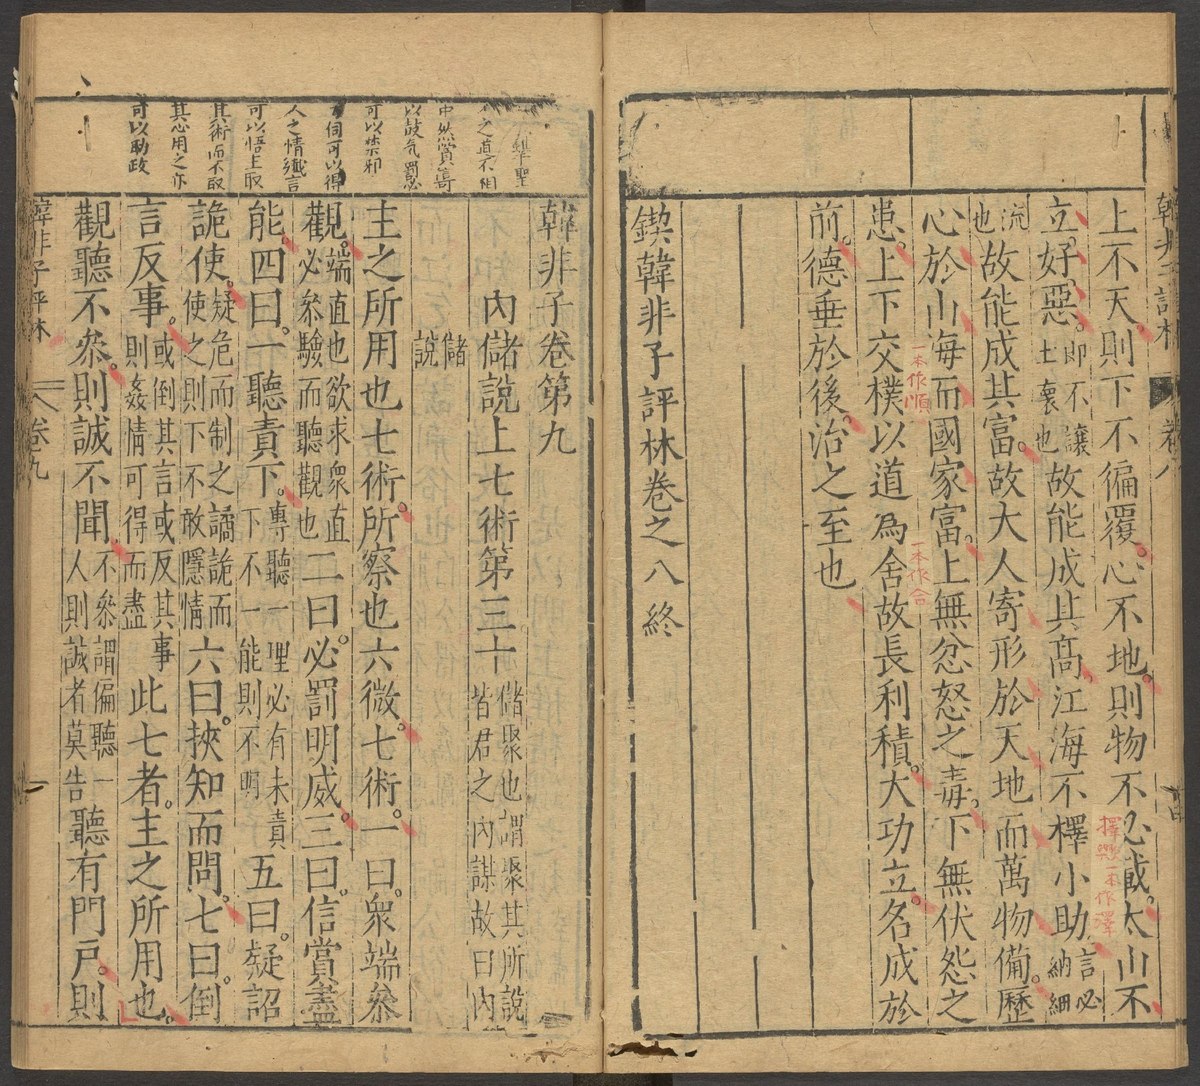 上不天則下不徧覆心不地則物不必載太山不
立好惡即不讓土壤也故能成其高江海不擇小助言必納細
流也故能成其富故大人寄形於天地而萬物備歷
心於山海而國家富上無忿怒之毒下無伏怨之
患上下交樸以道為舍故長利積大功立名成於
前德垂於後治之至也
鍥韓非子評林卷之八終
擇與一本作澤
一本作順
一本作合
卷八
韓非子卷第九
內儲說上七術第三十儲聚也謂聚其所說皆君之內謀故曰內
儲說
主之所用也七術所察也六微七術一曰衆端參
觀端直也欲求衆直必參驗而聽觀也二曰必罰明威三曰信賞盡
能四曰一聽責下專聽一理必有未責下不一能則不明五曰疑詔
詭使疑危而制之譎詭而使之則下不敢隱情六曰挾知而問七曰倒
言反事或倒其言或反其事則姦情可得而盡此七者主之所用也
觀聽不參則誠不聞不參謂偏聽一人則誠者莫告聽有門戶則
韓非子評林
卷九
聖
之道不相
中然賞譽
以鼓氣罰怒
可以禁邪
伺可以得
人之情讖言
可以悟主取
其術而不取
其心用之亦
可以助政